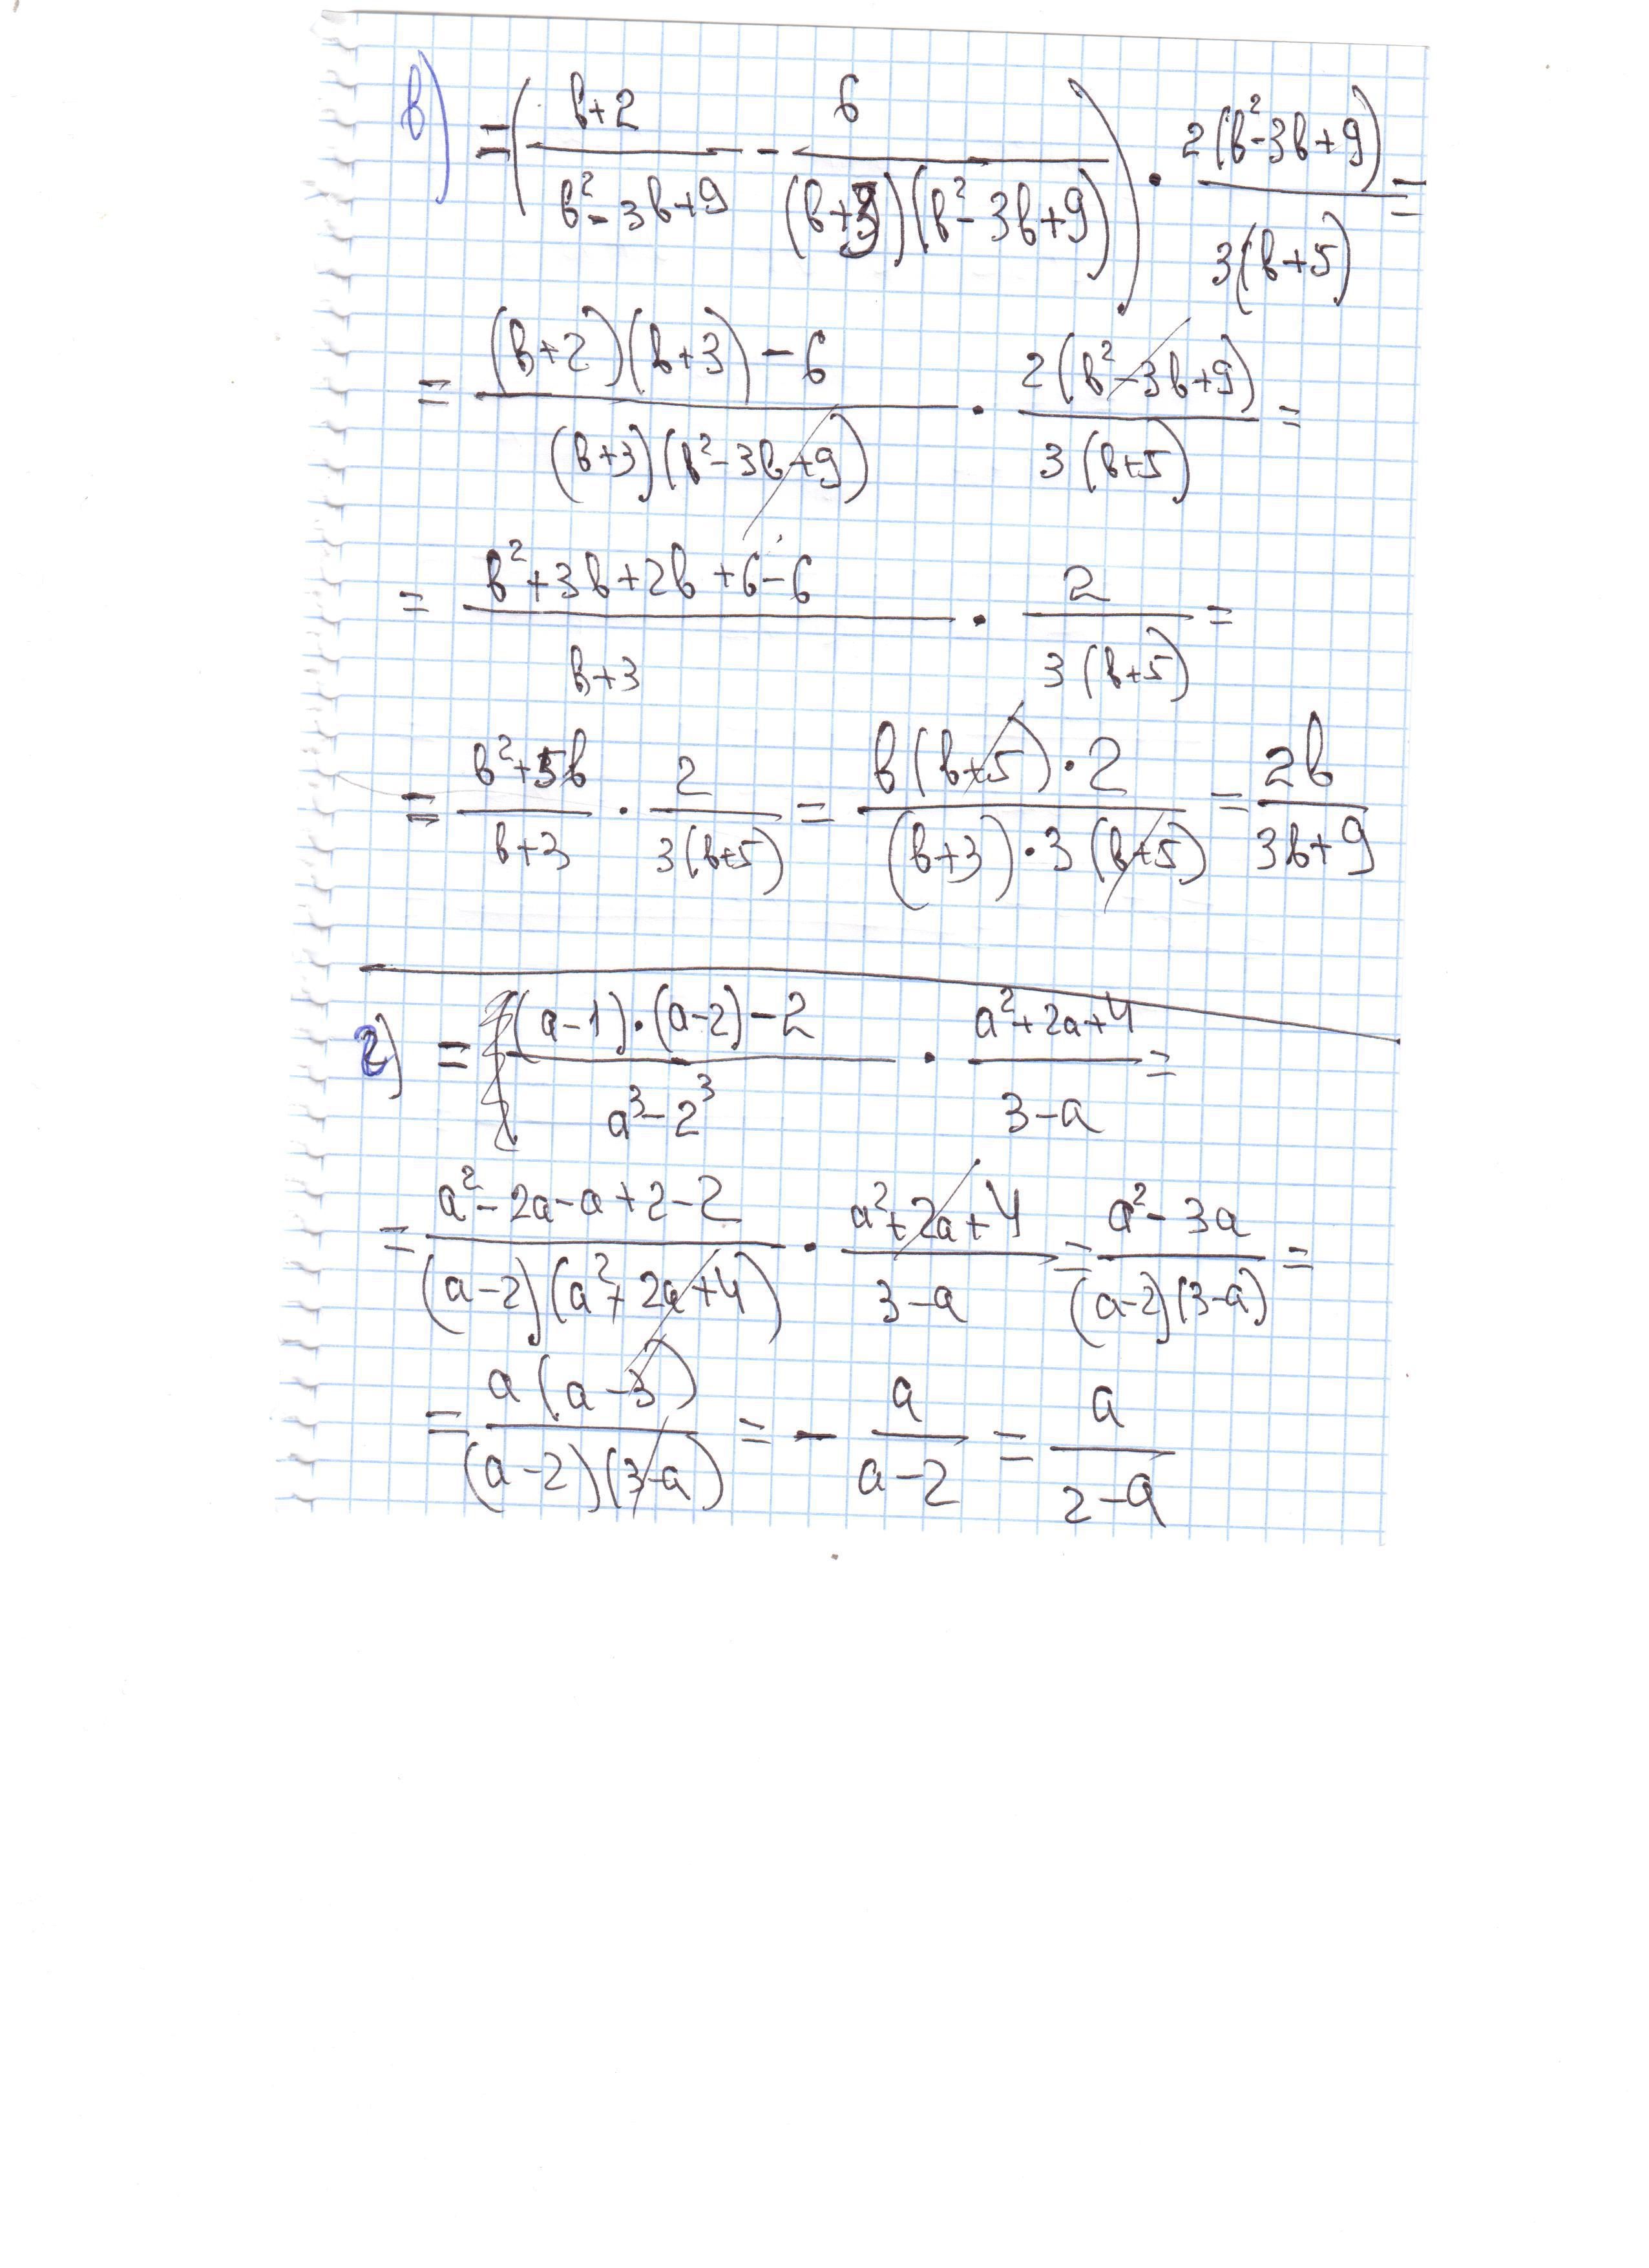 в) = ( (b+2)/(b²-3b+9) - 6/((b+3)(b²-3b+9)) ) · 2(b²-3b+9)/(3(b+5)) =
= ((b+2)(b+3)-6)/((b+3)(b²-3b+9)) · 2(b²-3b+9)/(3(b+5)) =
= (b²+3b+2b+6-6)/(b+3) · 2/(3(b+5)) =
= (b²+5b)/(b+3) · 2/(3(b+5)) = (b(b+5)·2)/((b+3)·3(b+5)) = 2b/(3b+9)
г) = ((a-1)·(a-2)-2)/(a³-2³) · (a²+2a+4)/(3-a) =
= (a²-2a-a+2-2)/((a-2)(a²+2a+4)) · (a²+2a+4)/(3-a) = (a²-3a)/((a-2)(3-a)) =
= (a(a-3))/((a-2)(3-a)) = - a/(a-2) = a/(2-a)